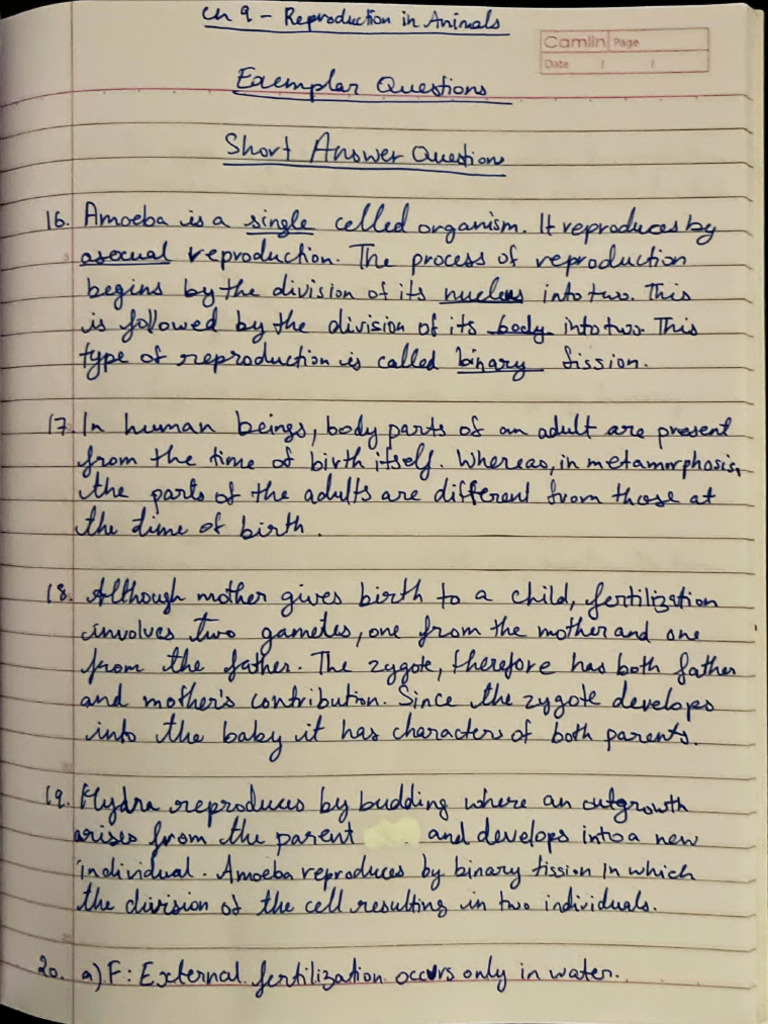 Ch 9 - Reproduction in Animals
Camlin Page
Date / /
Exemplar Questions
Short Answer Questions
16. Amoeba is a single celled organism. It reproduces by
asexual reproduction. The process of reproduction
begins by the division of its nucleus into two. This
is followed by the division of its body into two. This
type of reproduction is called binary fission.
17. In human beings, body parts of an adult are present
from the time of birth itself. Whereas, in metamorphosis,
the parts of the adults are different from those at
the time of birth.
18. Although mother gives birth to a child, fertilization
involves two gametes, one from the mother and one
from the father. The zygote, therefore has both father
and mother's contribution. Since the zygote develops
into the baby it has characters of both parents.
19. Hydra reproduces by budding where an outgrowth
arises from the parent and develops into a new
individual. Amoeba reproduces by binary fission in which
the division of the cell resulting in two individuals.
20. a) F: External fertilization occurs only in water.